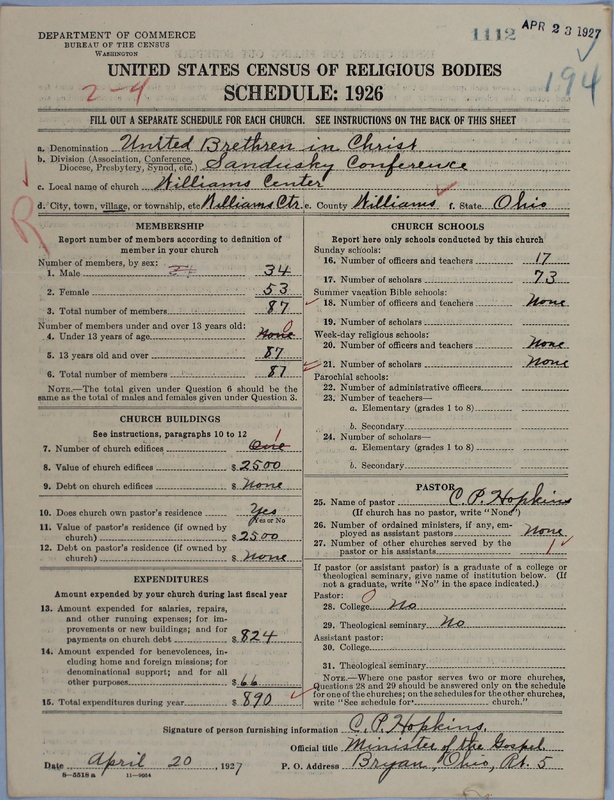 DEPARTMENT OF COMMERCE
BUREAU OF THE CENSUS
WASHINGTON
1112
APR 23 1927
194
2-4
UNITED STATES CENSUS OF RELIGIOUS BODIES
SCHEDULE: 1926
FILL OUT A SEPARATE SCHEDULE FOR EACH CHURCH. SEE INSTRUCTIONS ON THE BACK OF THIS SHEET
a. Denomination United Brethren in Christ
b. Division (Association, Conference, Diocese, Presbytery, Synod, etc.) Sandusky Conference
c. Local name of church Williams Center
d. City, town, village, or township, etc. Williams Ctr. e. County Williams f. State Ohio
R
MEMBERSHIP
Report number of members according to definition of
member in your church
Number of members, by sex:
1. Male 34
2. Female 53
3. Total number of members 87
Number of members under and over 13 years old:
4. Under 13 years of age None 0
5. 13 years old and over 87
6. Total number of members 87
NOTE.—The total given under Question 6 should be
same as the total of males and females given under Question 3.
CHURCH BUILDINGS
See instructions, paragraphs 10 to 12
7. Number of church edifices One 1
8. Value of church edifices $ 2500
9. Debt on church edifices $ None
10. Does church own pastor's residence Yes
Yes or No
11. Value of pastor's residence (if owned by
church) $ 2500
12. Debt on pastor's residence (if owned by
church) $ None
EXPENDITURES
Amount expended by your church during last fiscal year
13. Amount expended for salaries, repairs,
and other running expenses; for im-
provements or new buildings; and for
payments on church debt $ 824
14. Amount expended for benevolences, in-
cluding home and foreign missions; for
denominational support; and for all
other purposes $ 66
15. Total expenditures during year $ 890
CHURCH SCHOOLS
Report here only schools conducted by this church
Sunday schools:
16. Number of officers and teachers 17
17. Number of scholars 73
Summer vacation Bible schools:
18. Number of officers and teachers None
19. Number of scholars
Week-day religious schools:
20. Number of officers and teachers None
21. Number of scholars None
Parochial schools:
22. Number of administrative officers
23. Number of teachers—
a. Elementary (grades 1 to 8)
b. Secondary
24. Number of scholars—
a. Elementary (grades 1 to 8)
b. Secondary
PASTOR
25. Name of pastor C. P. Hopkins
(If church has no pastor, write "None")
26. Number of ordained ministers, if any, em-
ployed as assistant pastors None
27. Number of other churches served by the
pastor or his assistants 1
If pastor (or assistant pastor) is a graduate of a college or
theological seminary, give name of institution below. (If
not a graduate, write "No" in the space indicated.)
Pastor: 0
28. College No
29. Theological seminary No
Assistant pastor:
30. College
31. Theological seminary
NOTE.—Where one pastor serves two or more churches,
Questions 28 and 29 should be answered only on the schedule
for one of the churches; on the schedules for the other churches,
write "See schedule for church."
Signature of person furnishing information C. P. Hopkins.
Official title Minister of the Gospel
Date April 20, 1927 P. O. Address Bryan, Ohio, Rt. 5
8-5518 a 11-9054